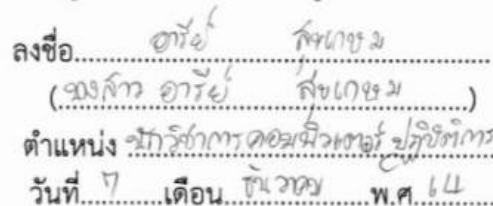 ลงชื่อ อารีย์ สุขเกษม
(นางสาว อารีย์ สุขเกษม)
ตำแหน่ง นักวิชาการคอมพิวเตอร์ ปฏิบัติการ
วันที่ 7 เดือน ธันวาคม พ.ศ 64